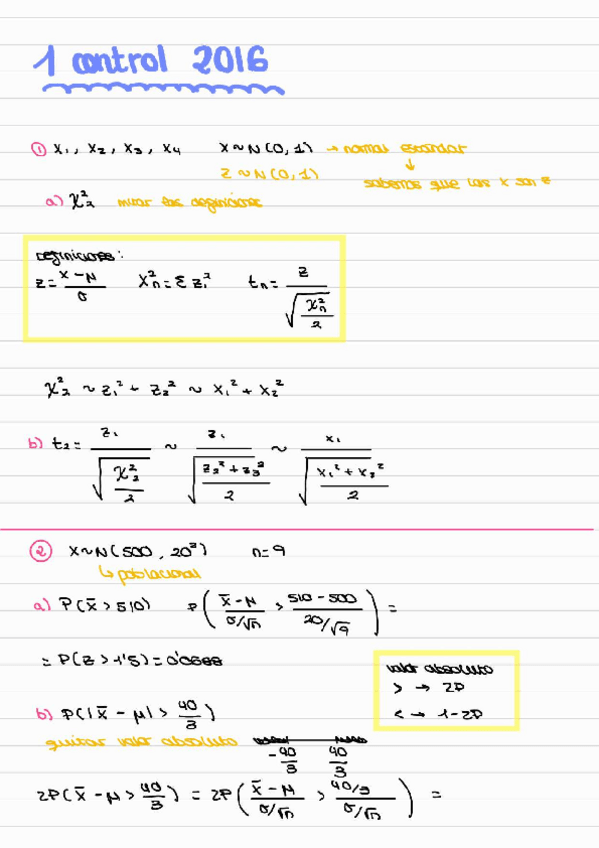 1 control 2016
① X₁, X₂, X₃, X₄ X~N(0,1) → normal estandar
Z~N(0,1) ↓ sabemos que las X son Z
a) χ²₂ mirar las definiciones
Definiciones:
Z = (X-μ)/σ χ²n = Σ Zi² tn = Z/√(χ²n/2)
χ²₂ ~ Z₁² + Z₂² ~ X₁² + X₂²
b) t₂ = Z₁/√(χ²₂/2) ~ Z₁/√((Z₂²+Z₃²)/2) ~ X₁/√((X₁²+X₂²)/2)
② X~N(500, 20²) n=9
↳ poblacional
a) P(X̄ > 510) P((X̄-μ)/(σ/√n) > (510-500)/(20/√9)) =
= P(Z > 1'5) = 0'0668
valor absoluto
> → 2P
< → 1-2P
b) P(|X̄ - μ| > 40/3)
quitar valor absoluto
-40/3 40/3
2P(X̄ - μ > 40/3) = 2P((X̄-μ)/(σ/√n) > (40/3)/(σ/√n)) =